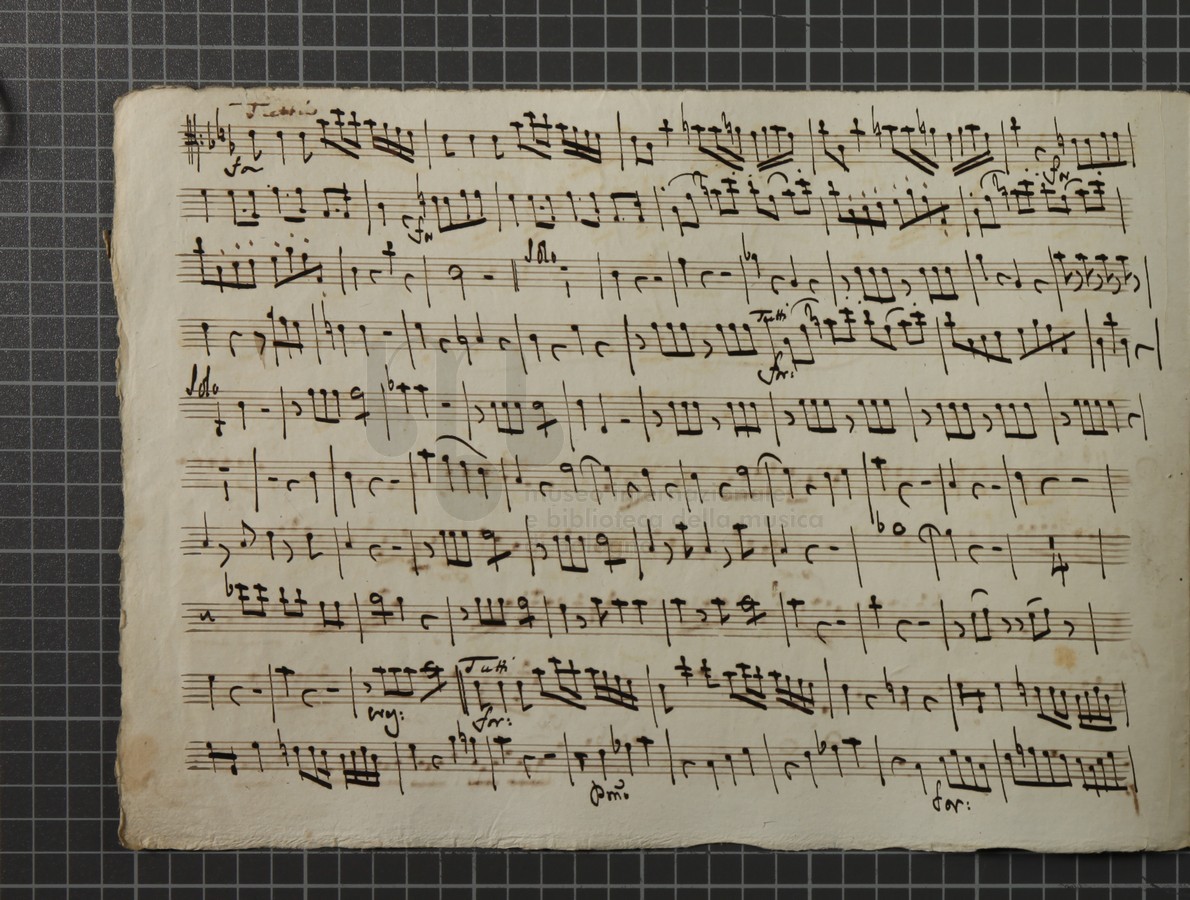 Tutti
for
fr
fr
Solo
Tutti
for:
Solo
museo internazionale
e biblioteca della musica
4
Tutti
for:
Pmo
for: